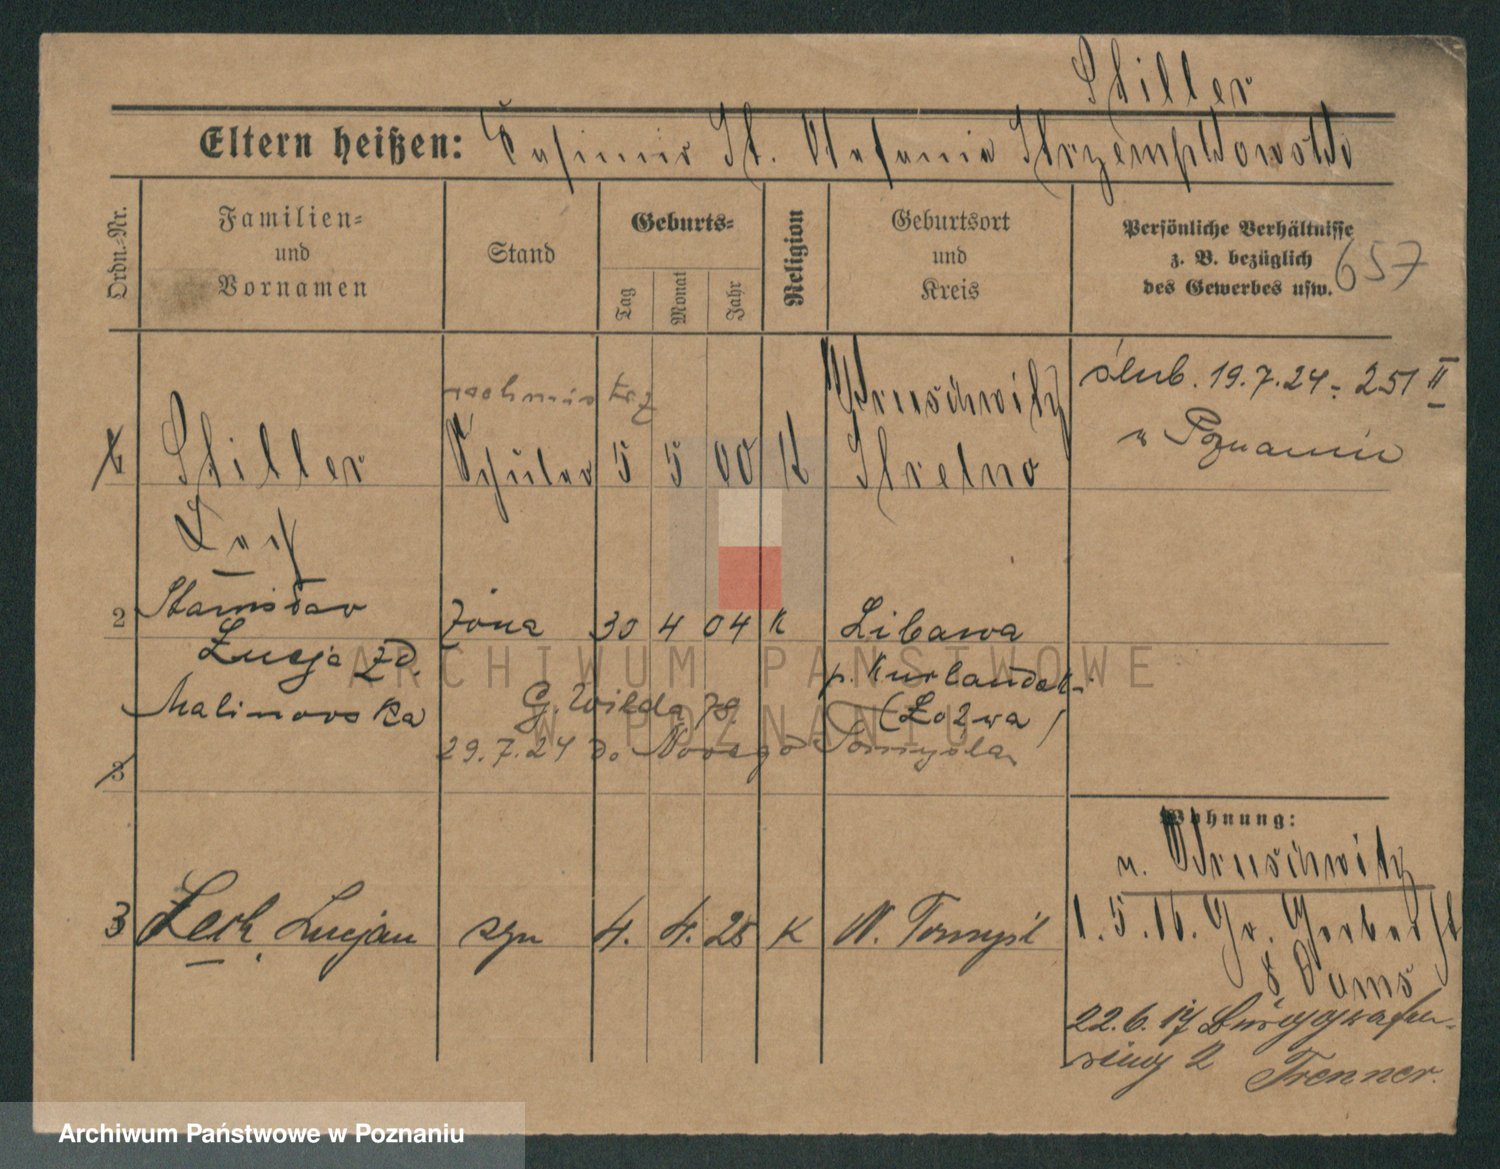 Stiller
Eltern heißen: Casimir St. Stefania Strzemptowska
Ordn.-Nr.
Familien-
und
Vornamen
Stand
Geburts-
Tag
Monat
Jahr
Religion
Geburtsort
und
Kreis
Persönliche Verhältnisse
z. B. bezüglich
des Gewerbes usw.
657
Kruschwitz
ślub. 19.7.24 251 II
w Poznaniu
1 Stiller Schüler 5 5 00 K Strelno
Lech
Stanisław
2 żona 30 4 04 K Libawa
Lucja zd. p. Kurlandzk.
Malinowska G. Wilda 79 (Łotwa)
29.7.24 do Nowego Tomyśla
3
Wohnung:
n. Kruschwitz
3 Lech Lucjan syn 4. 4. 25 K N. Tomyśl
1.5.16. Gr. Gerberst
8 Doms
22.6.17 Burggrafen-
ring 2 Trenner.
ARCHIWUM PAŃSTWOWE
W POZNANIU
Archiwum Państwowe w Poznaniu